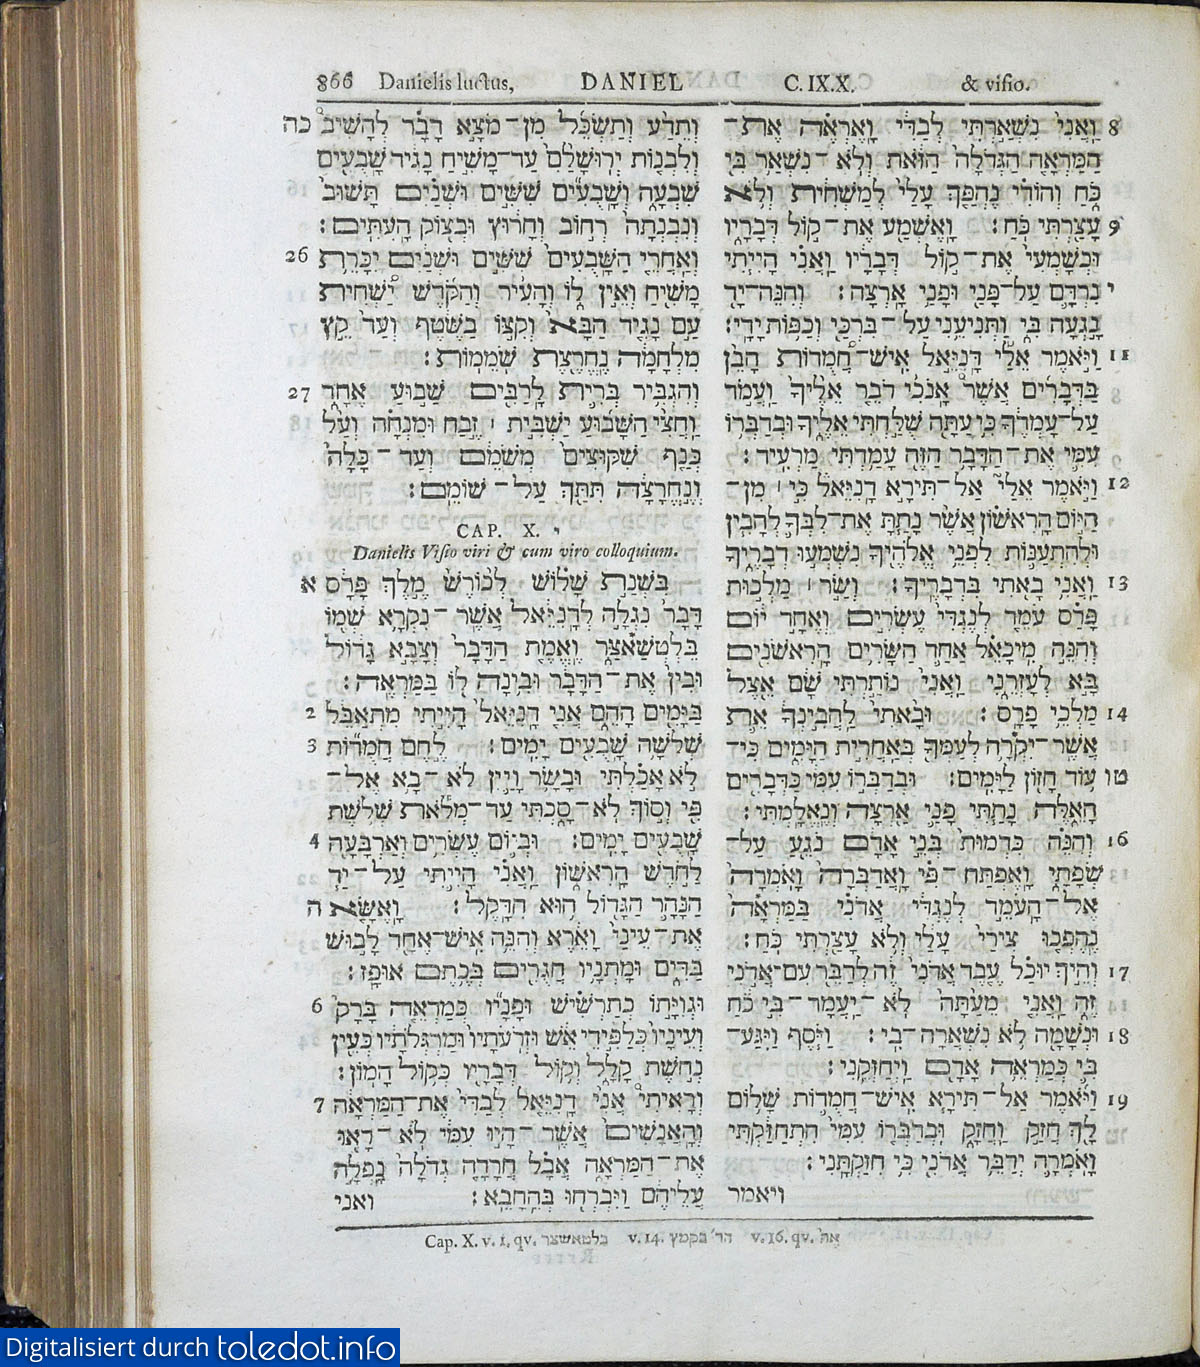 866 Danielis luctus, DANIEL C. IX.X. & visio.
וְתֵדַע וְתַשְׂכֵּל מִן־מֹצָא דָבָר לְהָשִׁיב כה
וְלִבְנוֹת יְרוּשָׁלִַם עַד־מָשִׁיחַ נָגִיד שָׁבֻעִים
שִׁבְעָה וְשָׁבֻעִים שִׁשִּׁים וּשְׁנַיִם תָּשׁוּב
וְנִבְנְתָה רְחוֹב וְחָרוּץ וּבְצוֹק הָעִתִּים׃
וְאַחֲרֵי הַשָּׁבֻעִים שִׁשִּׁים וּשְׁנַיִם יִכָּרֵת 26
מָשִׁיחַ וְאֵין לוֹ וְהָעִיר וְהַקֹּדֶשׁ יַשְׁחִית
עַם נָגִיד הַבָּא וְקִצּוֹ בַשֶּׁטֶף וְעַד קֵץ
מִלְחָמָה נֶחֱרֶצֶת שֹׁמֵמוֹת׃
וְהִגְבִּיר בְּרִית לָרַבִּים שָׁבוּעַ אֶחָד 27
וַחֲצִי הַשָּׁבוּעַ יַשְׁבִּית ׀ זֶבַח וּמִנְחָה וְעַל
כְּנַף שִׁקּוּצִים מְשֹׁמֵם וְעַד־כָּלָה
וְנֶחֱרָצָה תִּתַּךְ עַל־שׁוֹמֵם׃
CAP. X. י
Danielis Visio viri & cum viro colloquium.
בִּשְׁנַת שָׁלוֹשׁ לְכוֹרֶשׁ מֶלֶךְ פָּרַס א
דָּבָר נִגְלָה לְדָנִיֵּאל אֲשֶׁר־נִקְרָא שְׁמוֹ
בֵּלְטְשַׁאצַּר וֶאֱמֶת הַדָּבָר וְצָבָא גָדוֹל
וּבִין אֶת־הַדָּבָר וּבִינָה לוֹ בַּמַּרְאֶה׃
בַּיָּמִים הָהֵם אֲנִי דָנִיֵּאל הָיִיתִי מִתְאַבֵּל 2
שְׁלֹשָׁה שָׁבֻעִים יָמִים׃ לֶחֶם חֲמֻדוֹת 3
לֹא אָכַלְתִּי וּבָשָׂר וָיַיִן לֹא־בָא אֶל־
פִּי וְסוֹךְ לֹא־סָכְתִּי עַד־מְלֹאת שְׁלֹשֶׁת
שָׁבֻעִים יָמִים׃ וּבְיוֹם עֶשְׂרִים וְאַרְבָּעָה 4
לַחֹדֶשׁ הָרִאשׁוֹן וַאֲנִי הָיִיתִי עַל־יַד
הַנָּהָר הַגָּדוֹל הוּא חִדָּקֶל׃ וָאֶשָּׂא ה
אֶת־עֵינַי וָאֵרֶא וְהִנֵּה אִישׁ־אֶחָד לָבוּשׁ
בַּדִּים וּמָתְנָיו חֲגֻרִים בְּכֶתֶם אוּפָז׃
וּגְוִיָּתוֹ כְתַרְשִׁישׁ וּפָנָיו כְּמַרְאֵה בָרָק 6
וְעֵינָיו כְּלַפִּידֵי אֵשׁ וּזְרֹעֹתָיו וּמַרְגְּלֹתָיו כְּעֵין
נְחֹשֶׁת קָלָל וְקוֹל דְּבָרָיו כְּקוֹל הָמוֹן׃
וְרָאִיתִי אֲנִי דָנִיֵּאל לְבַדִּי אֶת־הַמַּרְאָה 7
וְהָאֲנָשִׁים אֲשֶׁר־הָיוּ עִמִּי לֹא־רָאוּ
אֶת־הַמַּרְאָה אֲבָל חֲרָדָה גְדֹלָה נָפְלָה
עֲלֵיהֶם וַיִּבְרְחוּ בְּהֵחָבֵא׃ ואני
8 וַאֲנִי נִשְׁאַרְתִּי לְבַדִּי וָאֶרְאֶה אֶת־
הַמַּרְאָה הַגְּדֹלָה הַזֹּאת וְלֹא־נִשְׁאַר בִּי
כֹּחַ וְהוֹדִי נֶהְפַּךְ עָלַי לְמַשְׁחִית וְלֹא
9 עָצַרְתִּי כֹּחַ׃ וָאֶשְׁמַע אֶת־קוֹל דְּבָרָיו
וּכְשָׁמְעִי אֶת־קוֹל דְּבָרָיו וַאֲנִי הָיִיתִי
י נִרְדָּם עַל־פָּנַי וּפָנַי אָרְצָה׃ וְהִנֵּה־יָד
נָגְעָה בִּי וַתְּנִיעֵנִי עַל־בִּרְכַּי וְכַפּוֹת יָדָי׃
11 וַיֹּאמֶר אֵלַי דָּנִיֵּאל אִישׁ־חֲמֻדוֹת הָבֵן
בַּדְּבָרִים אֲשֶׁר אָנֹכִי דֹבֵר אֵלֶיךָ וַעֲמֹד
עַל־עָמְדֶךָ כִּי עַתָּה שֻׁלַּחְתִּי אֵלֶיךָ וּבְדַבְּרוֹ
עִמִּי אֶת־הַדָּבָר הַזֶּה עָמַדְתִּי מַרְעִיד׃
12 וַיֹּאמֶר אֵלַי אַל־תִּירָא דָנִיֵּאל כִּי ׀ מִן־
הַיּוֹם הָרִאשׁוֹן אֲשֶׁר נָתַתָּ אֶת־לִבְּךָ לְהָבִין
וּלְהִתְעַנּוֹת לִפְנֵי אֱלֹהֶיךָ נִשְׁמְעוּ דְבָרֶיךָ
13 וַאֲנִי בָאתִי בִּדְבָרֶיךָ׃ וְשַׂר ׀ מַלְכוּת
פָּרַס עֹמֵד לְנֶגְדִּי עֶשְׂרִים וְאֶחָד יוֹם
וְהִנֵּה מִיכָאֵל אַחַד הַשָּׂרִים הָרִאשֹׁנִים
בָּא לְעָזְרֵנִי וַאֲנִי נוֹתַרְתִּי שָׁם אֵצֶל
14 מַלְכֵי פָרָס׃ וּבָאתִי לַהֲבִינְךָ אֵת
אֲשֶׁר־יִקְרָה לְעַמְּךָ בְּאַחֲרִית הַיָּמִים כִּי־
טו עוֹד חָזוֹן לַיָּמִים׃ וּבְדַבְּרוֹ עִמִּי כַּדְּבָרִים
הָאֵלֶּה נָתַתִּי פָנַי אַרְצָה וְנֶאֱלָמְתִּי׃
16 וְהִנֵּה כִּדְמוּת בְּנֵי אָדָם נֹגֵעַ עַל־
שְׂפָתָי וָאֶפְתַּח־פִּי וָאֲדַבְּרָה וָאֹמְרָה
אֶל־הָעֹמֵד לְנֶגְדִּי אֲדֹנִי בַּמַּרְאָה
נֶהֶפְכוּ צִירַי עָלַי וְלֹא עָצַרְתִּי כֹּחַ׃
17 וְהֵיךְ יוּכַל עֶבֶד אֲדֹנִי זֶה לְדַבֵּר עִם־אֲדֹנִי
זֶה וַאֲנִי מֵעַתָּה לֹא־יַעֲמָד־בִּי כֹחַ
18 וּנְשָׁמָה לֹא נִשְׁאֲרָה־בִי׃ וַיֹּסֶף וַיִּגַּע־
בִּי כְּמַרְאֵה אָדָם וַיְחַזְּקֵנִי׃
19 וַיֹּאמֶר אַל־תִּירָא אִישׁ־חֲמֻדוֹת שָׁלוֹם
לָךְ חֲזַק וַחֲזָק וּכְדַבְּרוֹ עִמִּי הִתְחַזַּקְתִּי
וָאֹמְרָה יְדַבֵּר אֲדֹנִי כִּי חִזַּקְתָּנִי׃
ויאמר
Cap. X. v. 1. qv. בלטאשצר v. 14. הר׳ בקמץ v. 16. qv.
Digitalisiert durch toledot.info